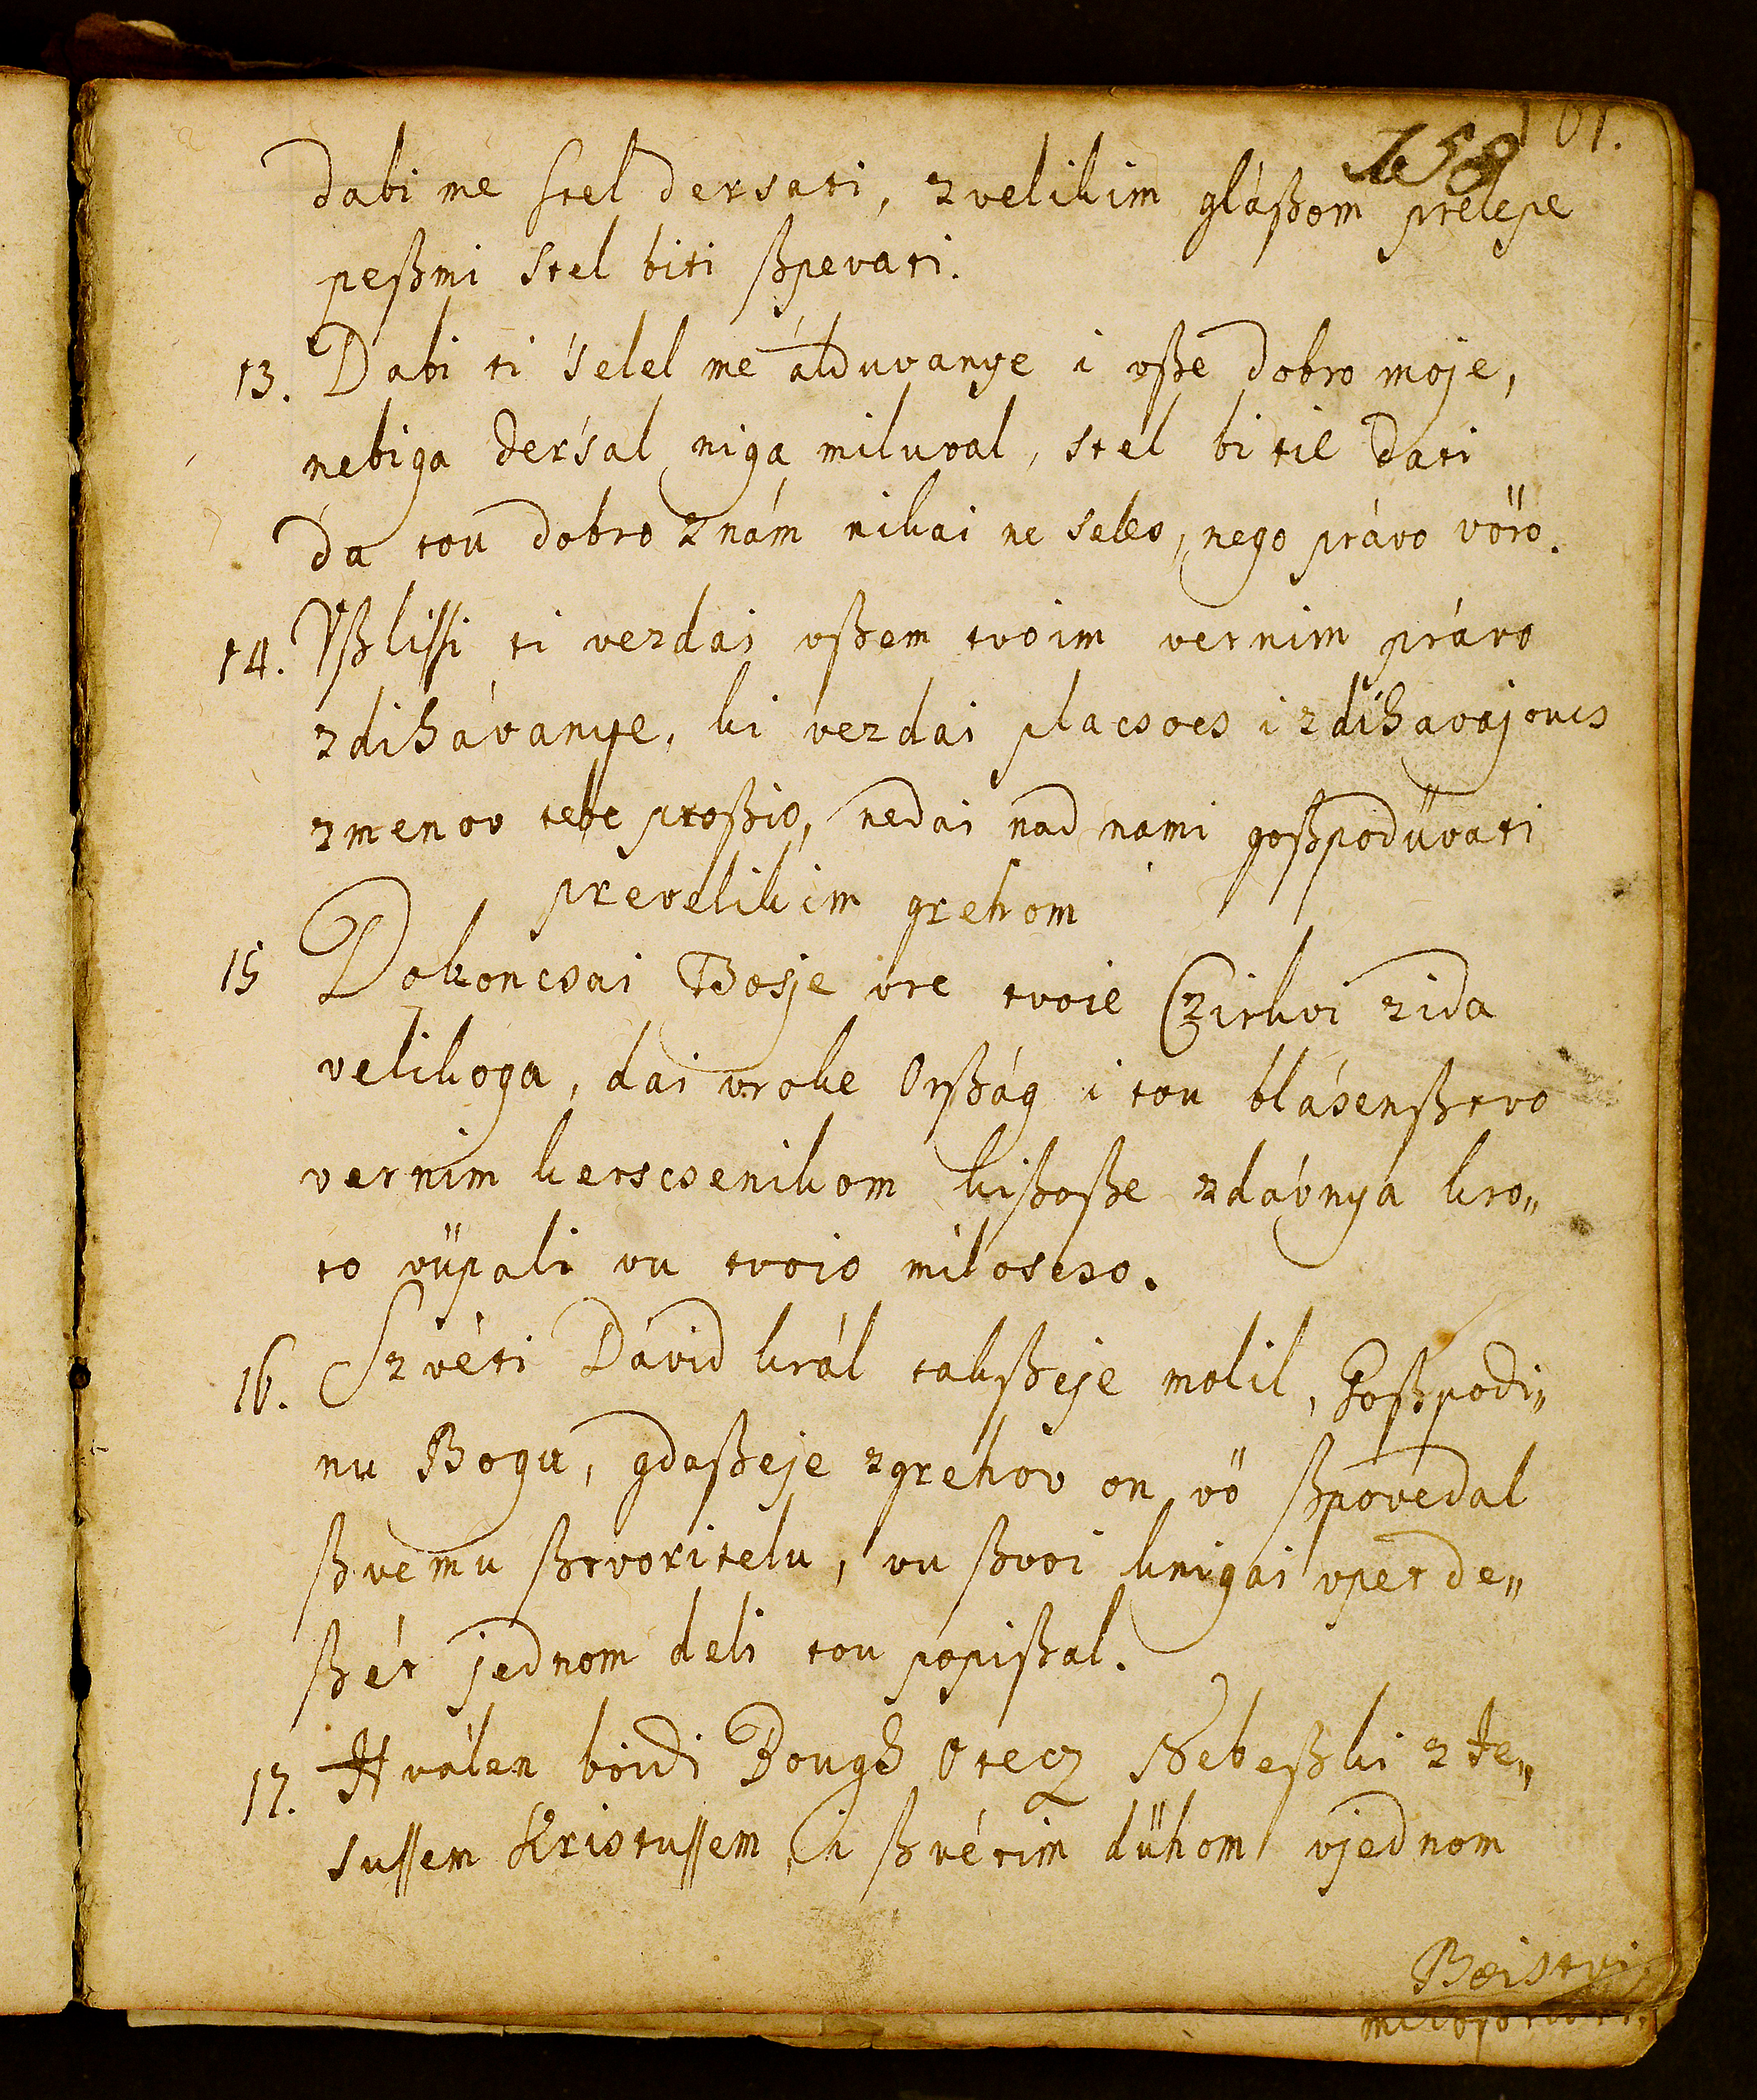 101.
158
dabi me stel dersati, zvelikim gláßom prelepe
peßmi stel biti ßpevati.
13. Dabi ti ſelel me álduvanye i vße dobro moje,
nebiga derśal niga miluval, stel bi tié dati
da tou dobro znám nikai ne seleo, nego právo vöro.
14. Vßlißi ti vezdai vßem tvoim vernim právo
zdihávanye, ki vezdai placsocs i zdihavajoucs
zmenov tebe proßio, nedai nad nami goßpodüvati
prevelikim grehom
15 Dokoncsai Bosje vre tvoie Czirkvi zida
velikoga, dai vroke Orßág i tou blásenßtvo
vernim kerscsenikom kißoße zdávnya kro„
to vüpali vu tvoio miloscso.
16. Szvéti Dávid král takßeje molil, Goßpodi„
nu Bogu, gdaßeje zgrehov on vö ßpovedal
ßvemu ßtvoritelu, vu ßvoi knigai vpet de„
ßét jednom deli tou popißal.
17. Hválen boidi Bough Otecz Nebeßki z Je„
sussem Kristussem, i ßvétim dühom vjednom
Boistvi